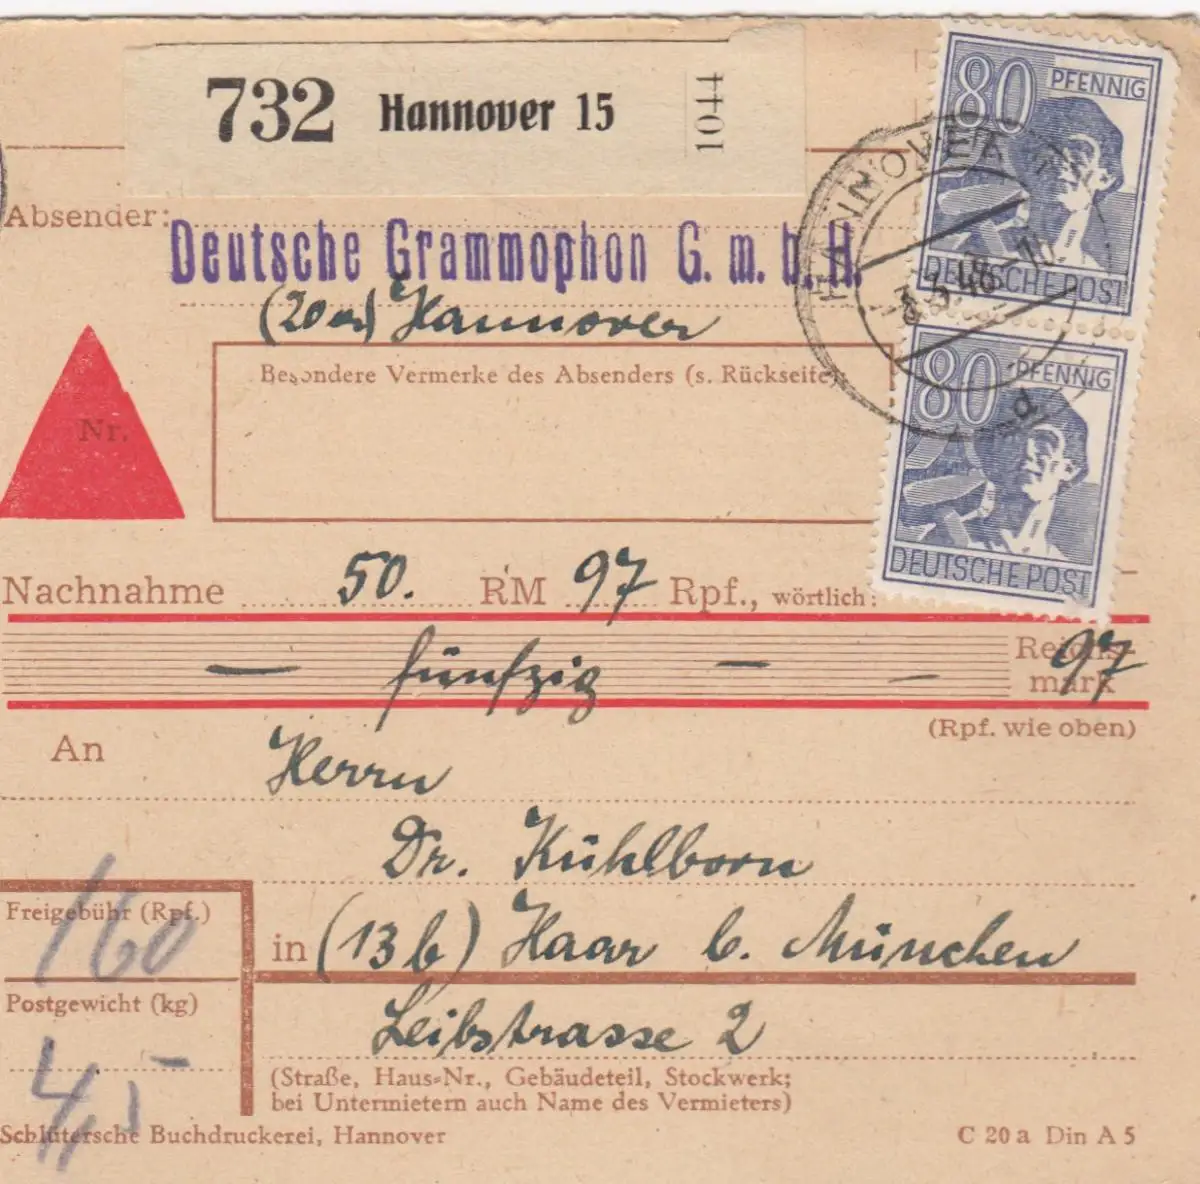 732 Hannover 15 1044
80 PFENNIG
DEUTSCHE POST
HANNOVER
d
80 PFENNIG
DEUTSCHE POST
Absender:
Deutsche Grammophon G. m. b. H.
(20a) Hannover
Besondere Vermerke des Absenders (s. Rückseite)
Nr.
Nachnahme 50. RM 97 Rpf., wörtlich:
— fünfzig — — Reichs- 97
mark
(Rpf. wie oben)
An Herrn
Dr. Kühlborn
Freigebühr (Rpf.)
160
in (13b) Haar b. München
Postgewicht (kg)
4,5
Leibstrasse 2
(Straße, Haus-Nr., Gebäudeteil, Stockwerk;
bei Untermietern auch Name des Vermieters)
Schlütersche Buchdruckerei, Hannover C 20 a Din A 5